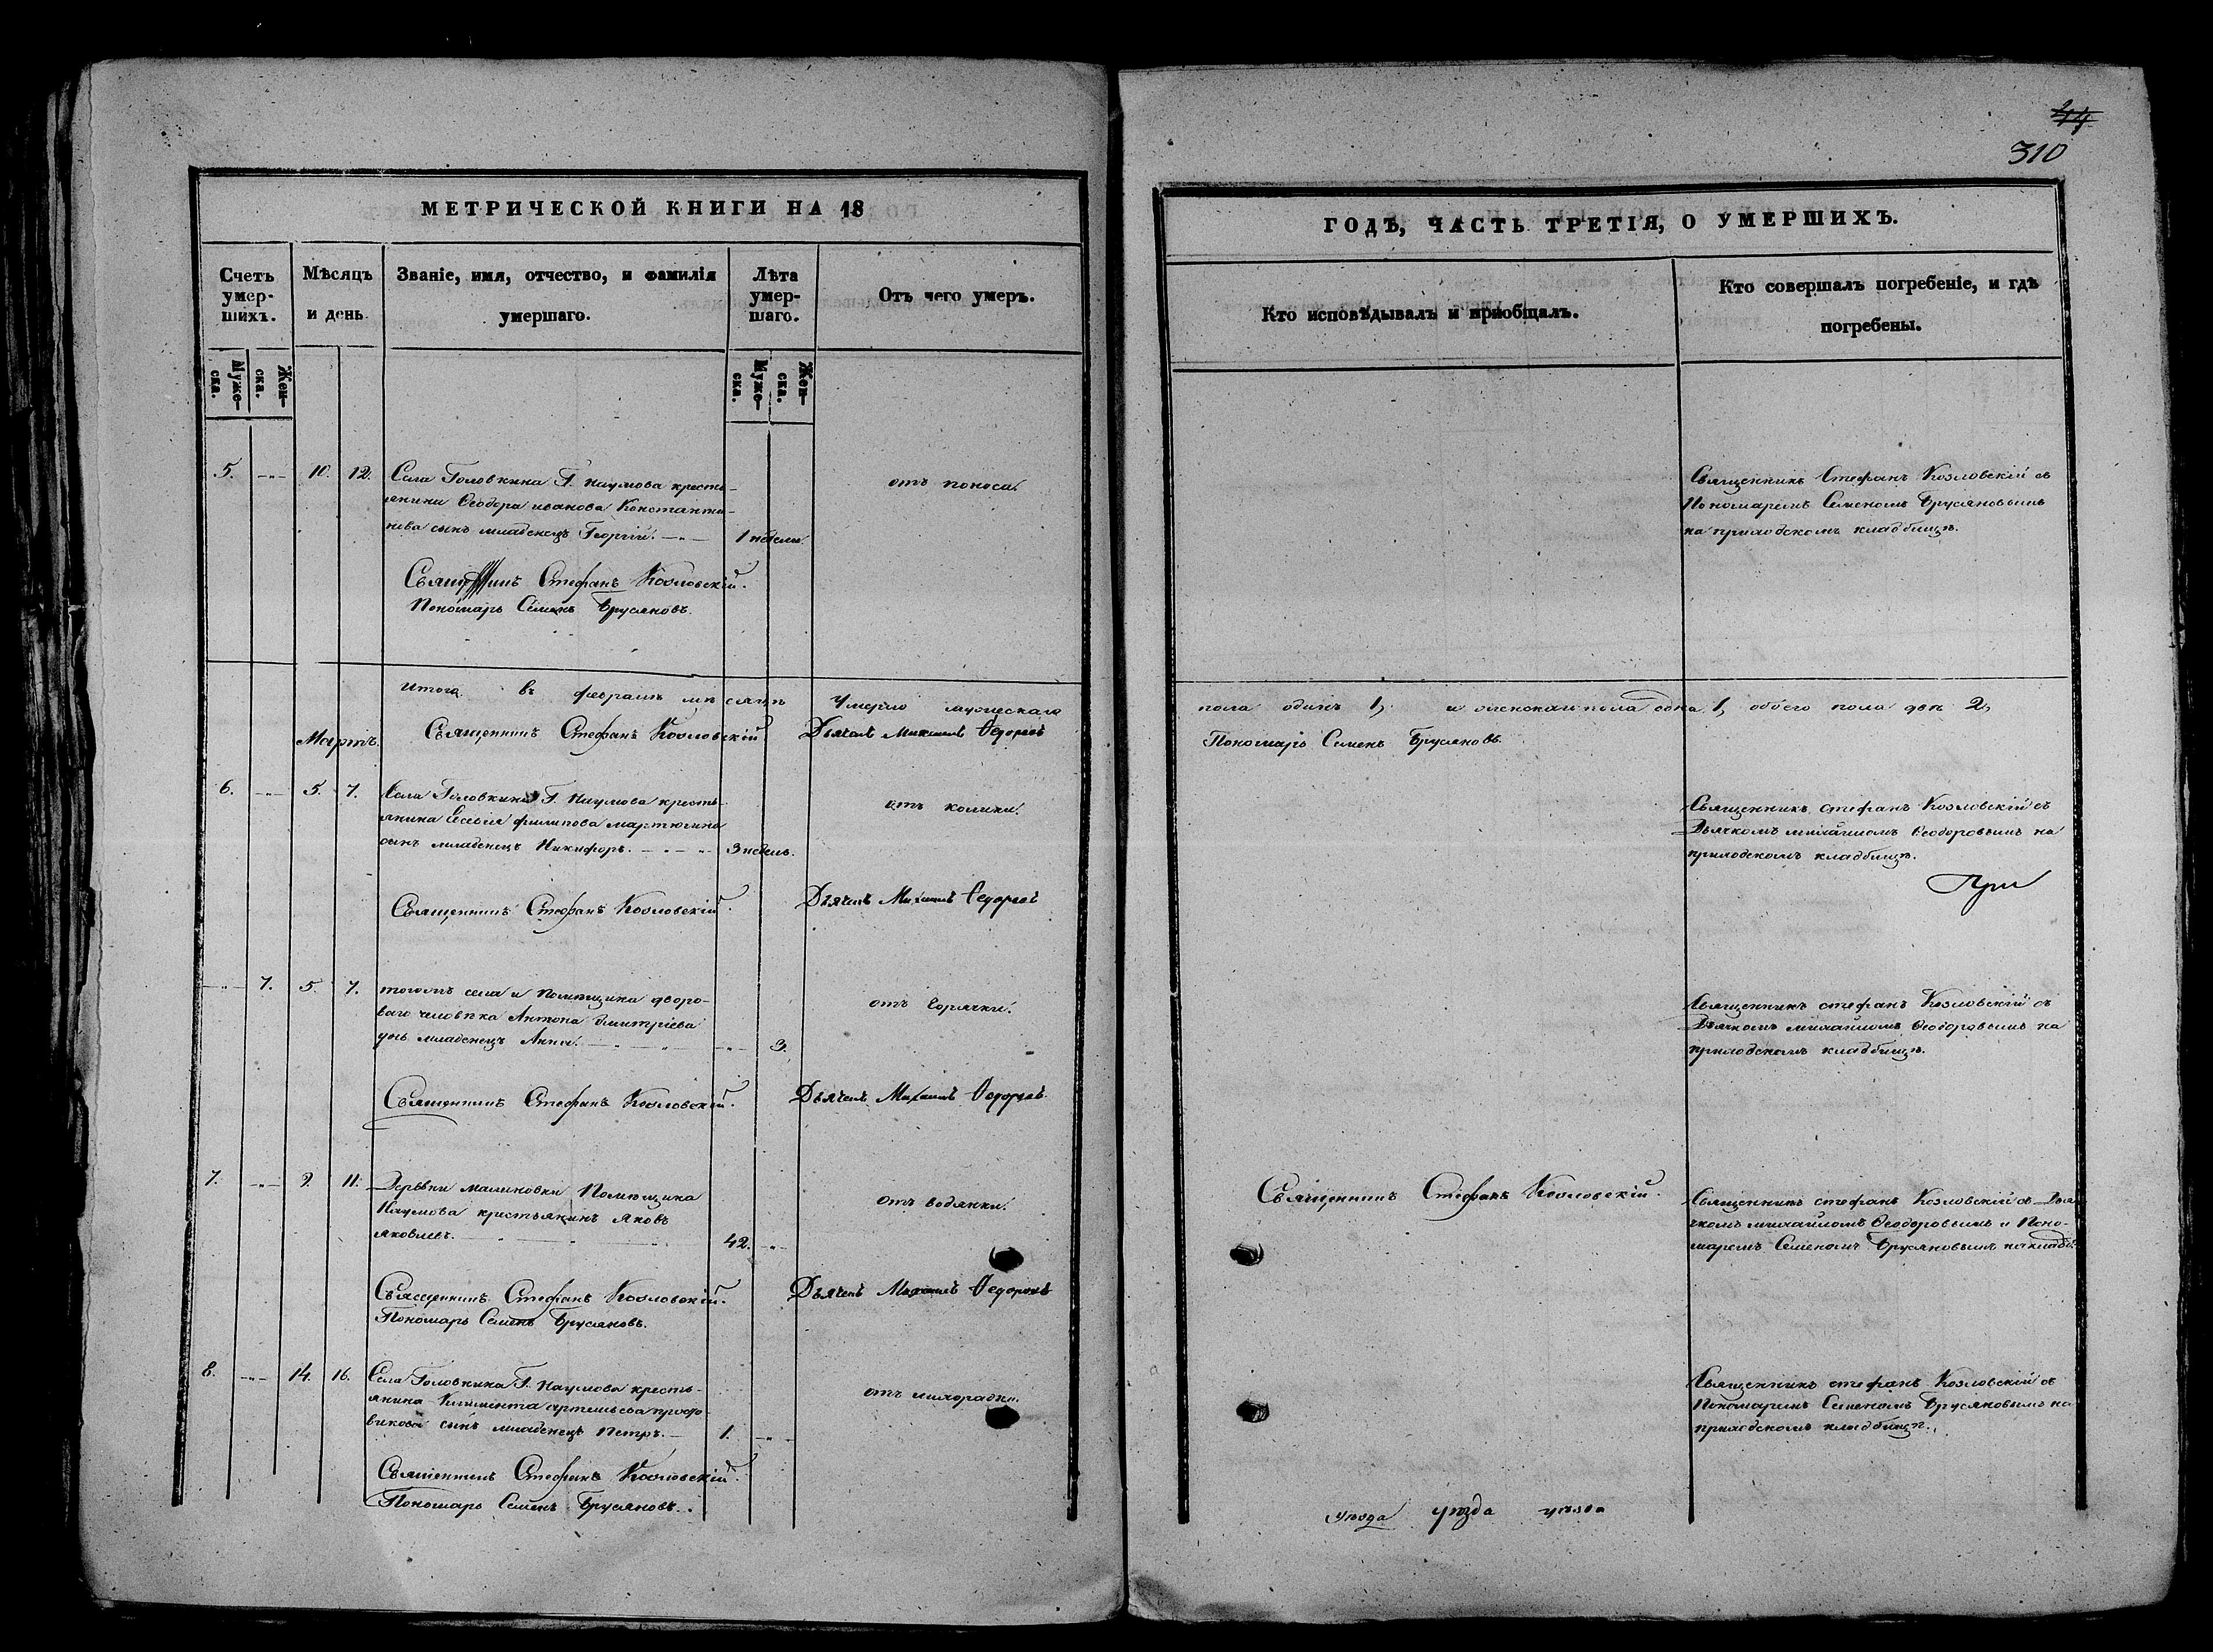 44
310
МЕТРИЧЕСКОЙ КНИГИ НА 18
ГОДЪ, ЧАСТЬ ТРЕТІЯ, О УМЕРШИХЪ.
Счетъ умер-шихъ.
Мѣсяцъ и день.
Званіе, имя, отчество, и фамилія умершаго.
Лѣта умер-шаго.
Отъ чего умеръ.
Кто исповѣдывалъ и пріобщалъ.
Кто совершалъ погребеніе, и гдѣ погребены.
Муже-ска.
Жен-ска.
Муже-ска.
Жен-ска.
5. -„- 10. 12. Села Головкина Г. Наумова кресть-
янина Ѳеодора иванова Константи-
нова сынъ младенецъ Георгій. -„- 1 недели.
отъ поноса.
Священникъ Стефанъ Козловскій съ
Пономаремъ Семеномъ Брусяновымъ
на приходскомъ кладбищѣ.
Стефанъ Козловскій.
Пономарь Семенъ Брусяновъ.
итого въ февралѣ мѣсяцѣ умерло мужескаго
пола одинъ 1, и женскаго пола одна 1, обоего пола два 2,
Священникъ Стефанъ Козловскій. Дьячекъ Михаилъ Ѳедоровъ
Пономарь Семенъ Брусяновъ.
Мартъ.
6. -„- 5. 7. Села Головкина Г. Наумова кресть-
янина филипова мартюгина
сынъ младенецъ Никифоръ. -„- 3 недель.
отъ колики.
Священникъ стефанъ Козловскій съ
Дьячкомъ михаиломъ Ѳеодоровымъ на
приходскомъ кладбищѣ.
Священникъ Стефанъ Козловскій. Дьячекъ Михаилъ Ѳедоровъ
-„- 7. 5. 7. тогожъ села и помѣщика дворо-
ваго человѣка Антона Дмитріева
дчь младенецъ Анна. -„- 3.
отъ горячки.
Священникъ стефанъ Козловскій съ
Дьячкомъ михаиломъ Ѳеодоровымъ на
приходскомъ кладбищѣ.
Священникъ Стефанъ Козловскій. Дьячекъ Михаилъ Ѳедоровъ.
7. -„- 9. 11. Деревни малиновки Помѣщика
Наумова крестьянинъ яковъ
яковлевъ. 42. -„-
отъ водянки.
Священникъ Стефанъ Козловскій.
Священникъ стефанъ Козловскій съ Дья-
чкомъ михаиломъ Ѳеодоровымъ и Поно-
маремъ Семеномъ Брусяновымъ на кладби.
Священникъ Стефанъ Козловскій. Дьячекъ Михаилъ Ѳедоровъ
Пономарь Семенъ Брусяновъ.
8. -„- 14. 16. Села Головкина Г. Наумова кресть-
янина Климента артемьева
сынъ младенецъ Петръ. - 1. -„-
отъ лихорадки.
Священникъ стефанъ Козловскій съ
Пономаремъ Семеномъ Брусяновымъ на
приходскомъ кладбищѣ.
Священникъ Стефанъ Козловскій.
Пономарь Семенъ Брусяновъ.
уѣзда уѣзда уѣзда